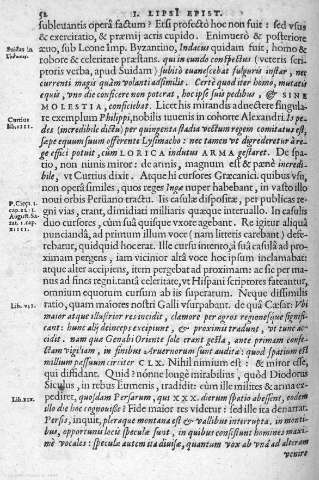 52 I. LIPSI EPIST.
subleuantis operâ factum? Etsi profectò hoc non fuit: sed vsus
& exercitatio, & præmij acris cupido. Enimuerò & pòstremo
Suidas in æuo, sub Leone Imp. Byzantino, Indacus quidam fuit, homo &
robore & celeritate præstans. qui in cundo conspectus (veteris scri-
ptoris verba, apud Suidam) subitò euanescebat fulguris instar, nec
currenti magis quàm volanti adsimilis. Certè quod iter homo, mutatis
equis, vno die conficere non poterat, hoc ipse suis pedibus, & SINE
MOLESTIA, conficiebat. Licet his mirandis adnectere singula-
Curtius re exemplum Philippi, nobilis iuuenis in cohorte Alexandri. Is pe-
lib. VIII. des (incredibile dictu) per quingenta stadia vectum regem comitatus est,
sæpe equum suum offerente Lysimacho: nec tamen vt degrederetur à re-
ge effici potuit, cum LORICA indutus ARMA gestaret. De spa-
tio, non nimis miror: de armis, magnum est & pænè incredi-
bile, vt Curtius dixit. Atque hi cursores Græcanici. quibus vsu,
non operâ similes, quos reges Ingæ nuper habebant, in vasto illo
noui orbis Peruano tractu. Iis casulæ dispositæ, per publicas re-
P. Cieça 1. gni vias, erant, dimidiati milliaris quæque interuallo. In casulis
duo cursores, cum suâ quisque vxore agebant. Re igitur aliquâ
nunciandâ, ad primum illum voce (nam litteris carebant) defe-
rebatur, quidquid hoc erat. Ille cursu intento, à suâ casulâ ad pro-
ximam pergens, iam vicinior altâ voce hoc ipsum inclamabat:
atque alter accipiens, item pergebat ad proximam: ac sic per ma-
nus ad fines regni. tantâ celeritate, vt Hispani scriptores fateantur,
omnium equorum cursum ab iis superatum. Neque dissimilis
Lib. VII. ratio, quam maiores nostri Galli vsurpabant. de quâ Cæsar: Vbi
maior atque illustrior res incidit, clamore per agros regionesque signifi-
cant: hunc alij deinceps excipiunt, & proximis tradunt, vt tunc ac-
cidit. nam quæ Genabi Oriente sole erant gesta, ante primam confe-
ctam vigiliam, in finibus Aruernorum sunt audita: quod spatium est
millium passuum circiter CLX. Nihil nimium est: & miror esse,
qui diffidant. Quid? nónne longè mirabilius, quod Diodorus
Siculus, in rebus Eumenis, tradidit? cùm ille milites & arma ex-
Lib. XIX. pediret, quosdam Persarum, qui XXX. dierum spatio abessent, eodem
illo die hoc cognouisse? Fide maior res videtur: sed ille ita denarrat.
Persis, inquit, pleraque montana est & vallibus interrupta. in monti-
bus, opportunis locis speculæ sunt, in quibus consistunt homines maxi-
mè vocales: speculæ autem ita diuisæ, quantum vox ab vnâ ad alteram
venire